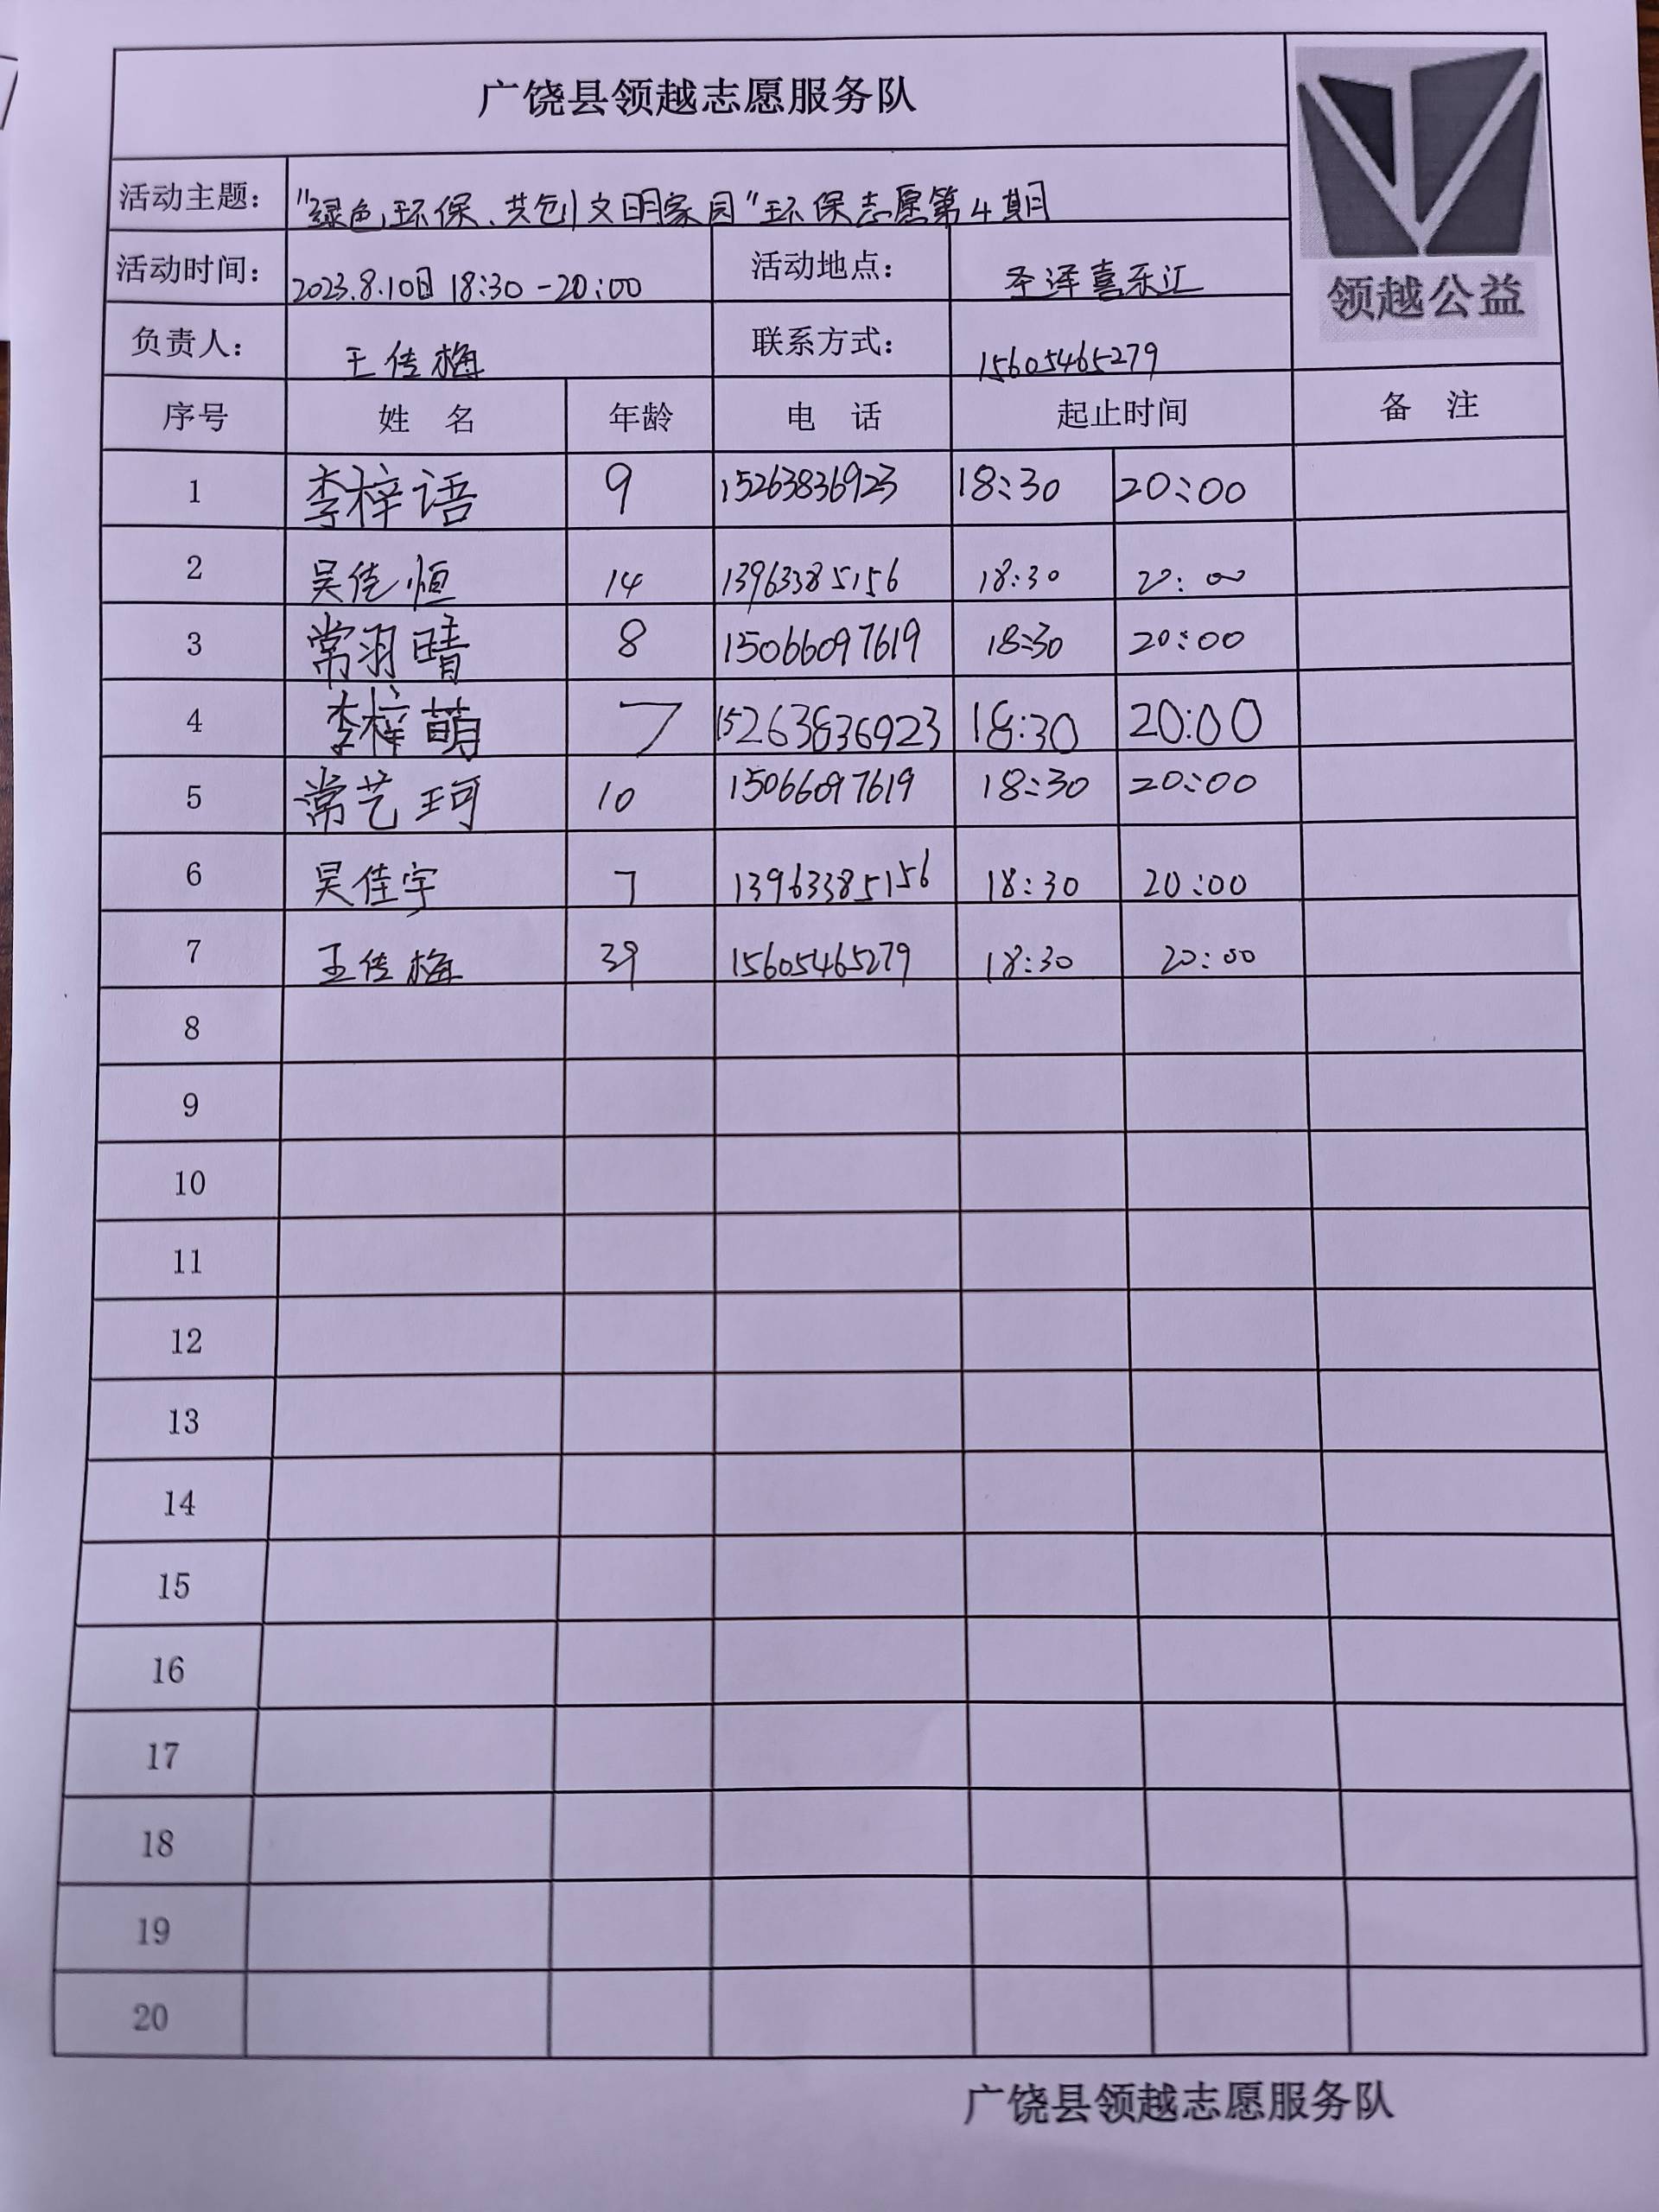 广饶县领越志愿服务队
领越公益
活动主题： "绿色环保、共创文明家园"环保志愿第4期
活动时间： 2023.8.10日 18:30-20:00 活动地点： 圣泽喜乐汇
负责人： 王佳梅 联系方式： 15605465279
序号 姓 名 年龄 电 话 起止时间 备 注
1 李梓语 9 15263836923 18:30 20:00
2 吴佳恒 14 13963385156 18:30 20:00
3 常羽晴 8 15066097619 18:30 20:00
4 李梓萌 7 15263836923 18:30 20:00
5 常艺珂 10 15066097619 18:30 20:00
6 吴佳宇 7 13963385156 18:30 20:00
7 王佳梅 39 15605465279 18:30 20:00
8
9
10
11
12
13
14
15
16
17
18
19
20
广饶县领越志愿服务队